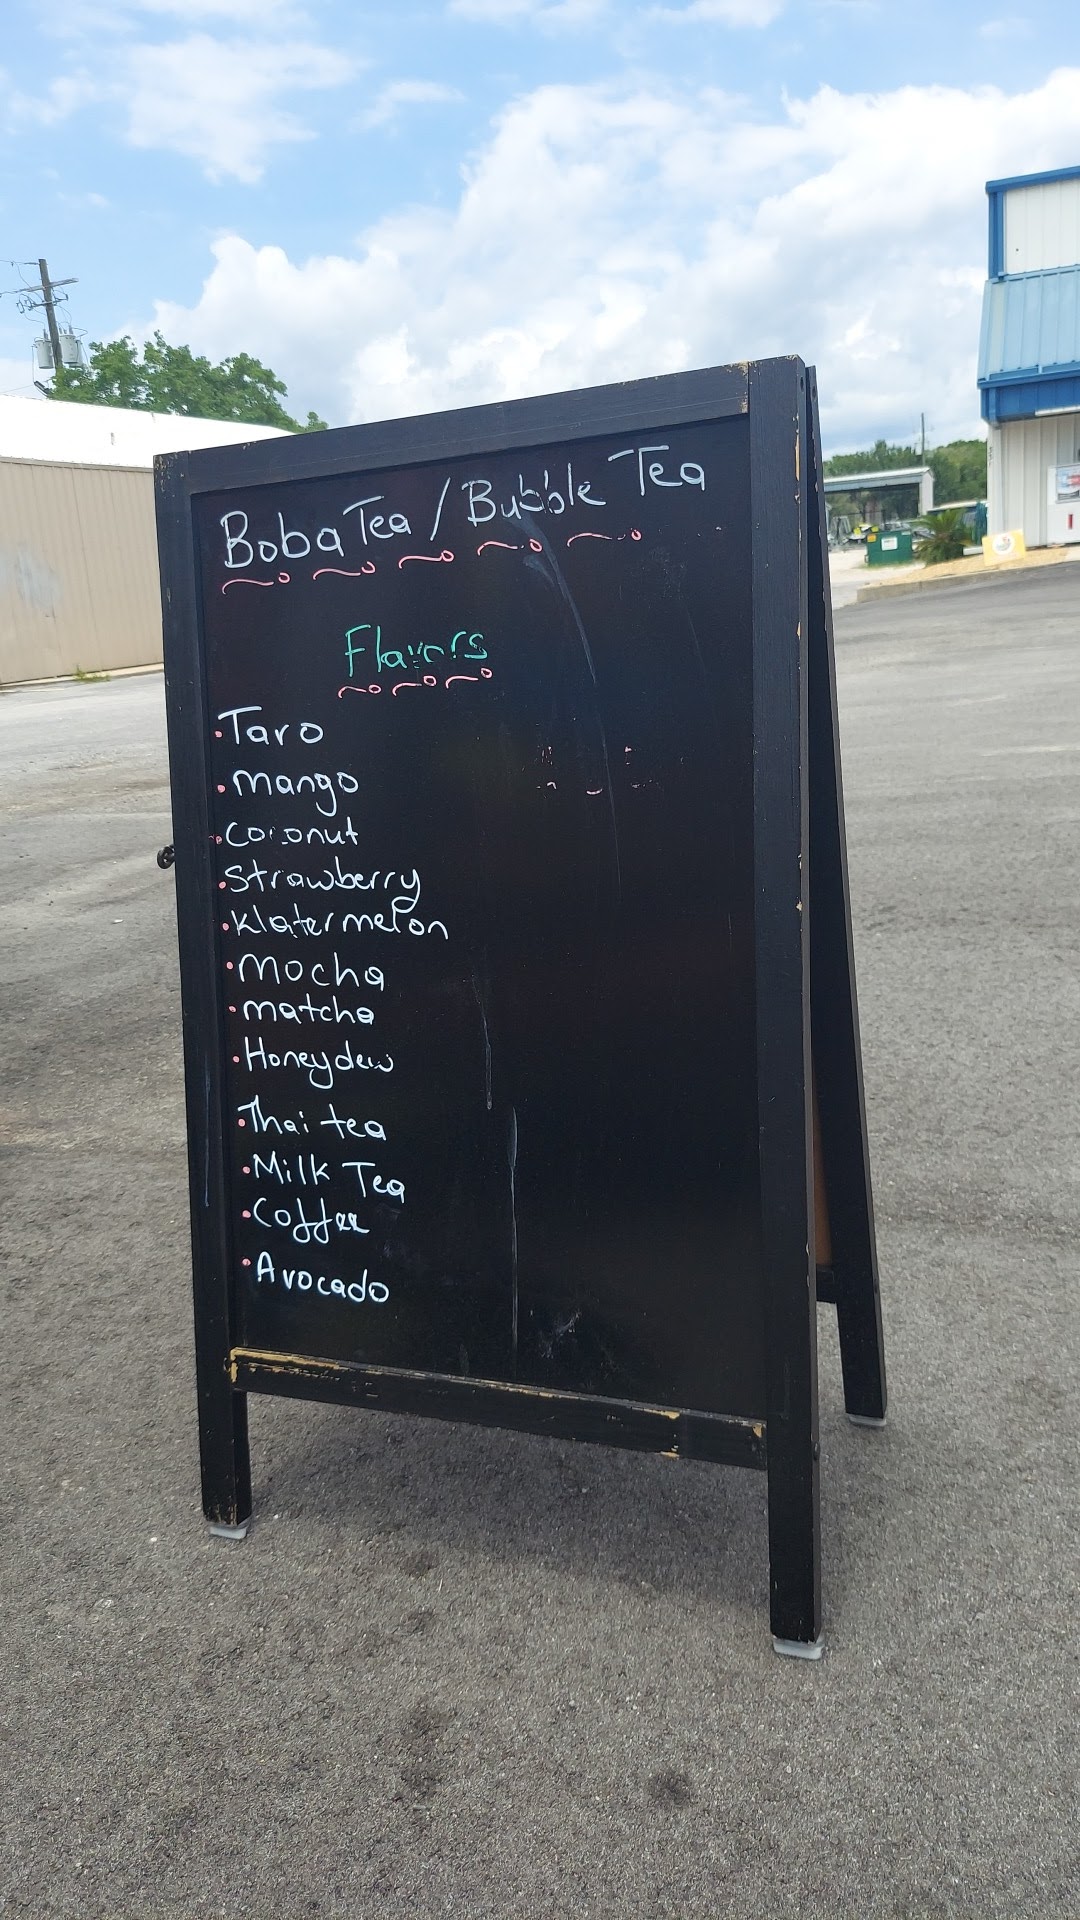 Boba Tea / Bubble Tea
Flavors
Taro
mango
coconut
strawberry
Watermelon
Mocha
matcha
Honeydew
Thai tea
Milk Tea
Coffee
Avocado